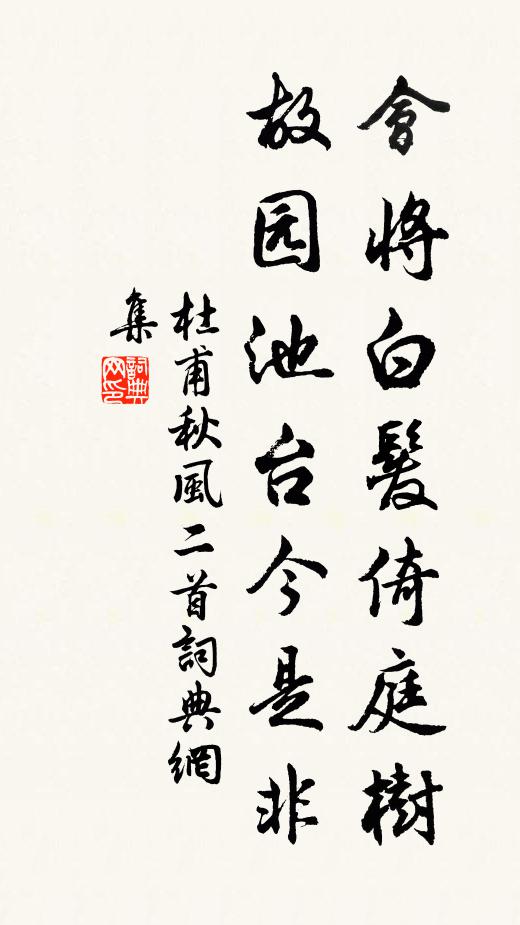 會將白髮倚庭樹
故园池台今是非
杜甫秋風二首詞典網
集
詞典
网印